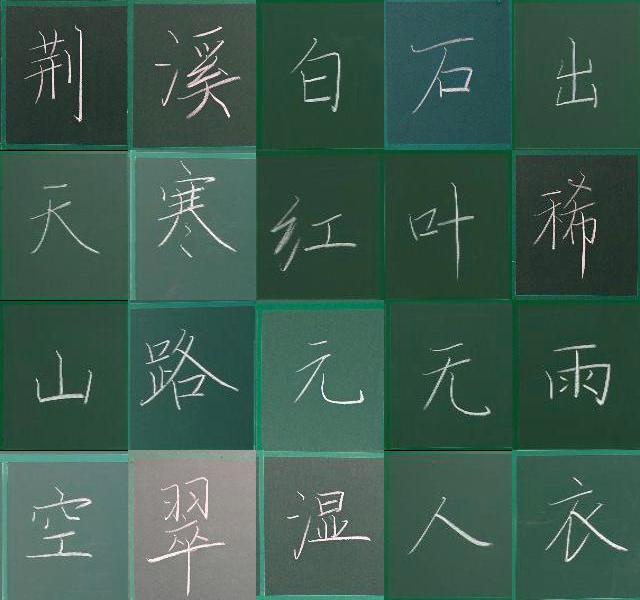 荆溪白石出
天寒红叶稀
山路元无雨
空翠湿人衣